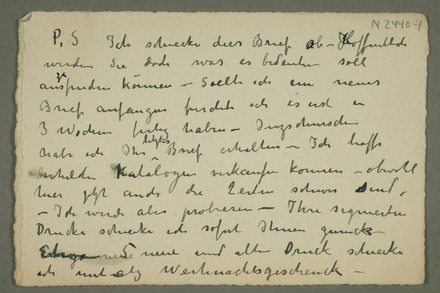 N 2440-1
P, S Ich schicke dies Brief ab - Hoffentlich
werden Sie doch was es bedeuten soll
ausfinden können - Sollte ich ein neues
Brief anfangen fürchte ich es erst in
3 Wochen fertig haben - Inzwischen
habe ich Ihr letztes Brief erhalten - Ich hoffe
Katalogen verkaufen können - obwohl
hier jetzt auch die Zeiten schwer sind,
- Ich werde aber probieren - Ihre signierten
Drucke schicke ich sofort Ihnen zurück
neue und alte Druck schicke
ich mit als Weihnachtsgeschenck -